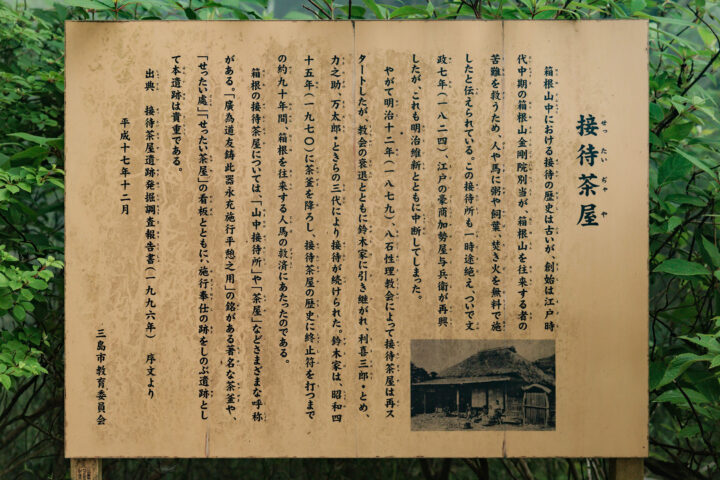 接待茶屋
せったいぢゃや
箱根山中における接待の歴史は古いが、創始は江戸時
代中期の箱根山金剛院別当が、箱根山を往来する者の
苦難を救うため、人や馬に粥や飼葉、焚き火を無料で施
したと伝えられている。この接待所も一時途絶え、ついで文
政七年(一八二四)江戸の豪商加勢屋与兵衛が再興
したが、これも明治維新とともに中断してしまった。
やがて明治十二年(一八七九)、八石性理教会によって接待茶屋は再ス
タートしたが、教会の衰退とともに鈴木家に引き継がれ、利喜三郎・とめ、
力之助、万太郎・ときらの三代により接待が続けられた。鈴木家は、昭和四
十五年(一九七〇)に茶釜を降ろし、接待茶屋の歴史に終止符を打つまで
の約九十年間、箱根を往来する人馬の救済にあたったのである。
箱根の接待茶屋については、「山中接待所」や「茶屋」などさまざまな呼称
がある。「廣為道友鋳此器永充施行平憩之用」の銘がある著名な茶釜や、
「せったい處」「せったい茶屋」の看板とともに、施行奉仕の跡をしのぶ遺跡とし
て本遺跡は貴重である。
出典 接待茶屋遺跡発掘調査報告書(一九九六年) 序文より
平成十七年十二月
三島市教育委員会